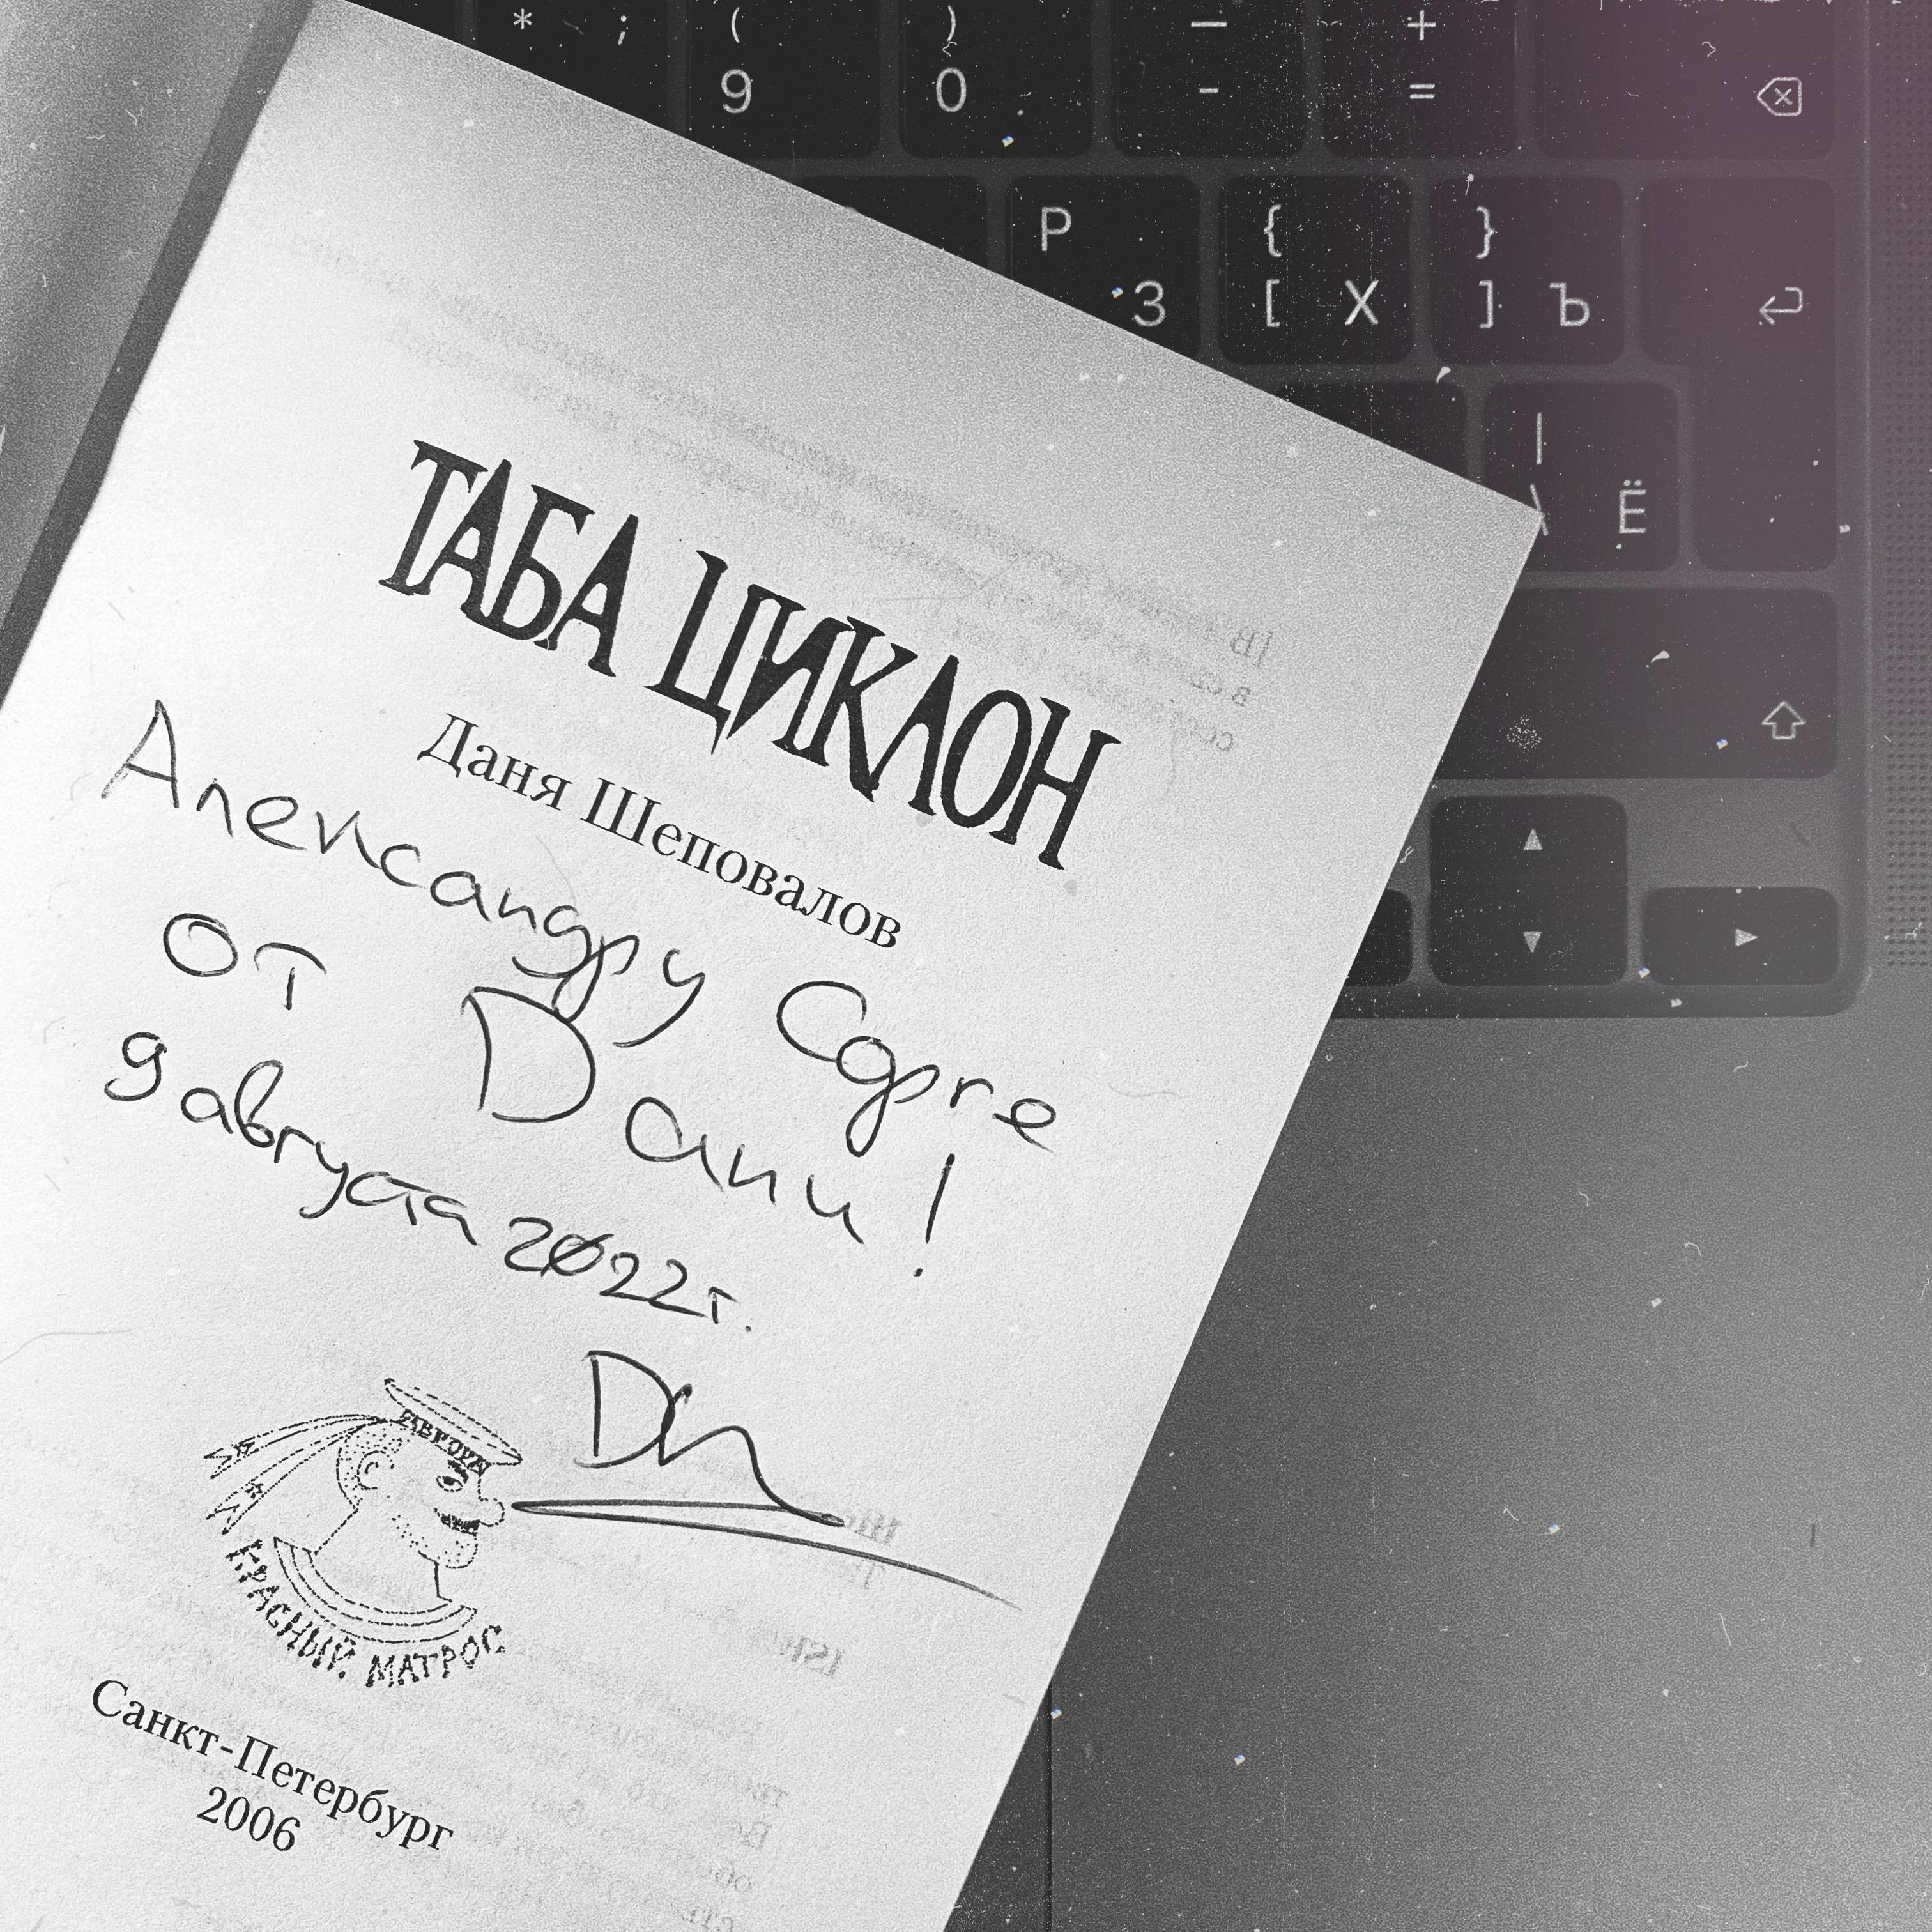 * ; ( ) — +
9 0 - =
P { }
З [ Х ] Ъ
|
\ Ё
ТАБА ЦИКЛОН
Даня Шеповалов
Александру Сорге
от Dани!
9 августа 2022г.
АВРОРА
КРАСНЫЙ МАТРОС
Санкт-Петербург
2006